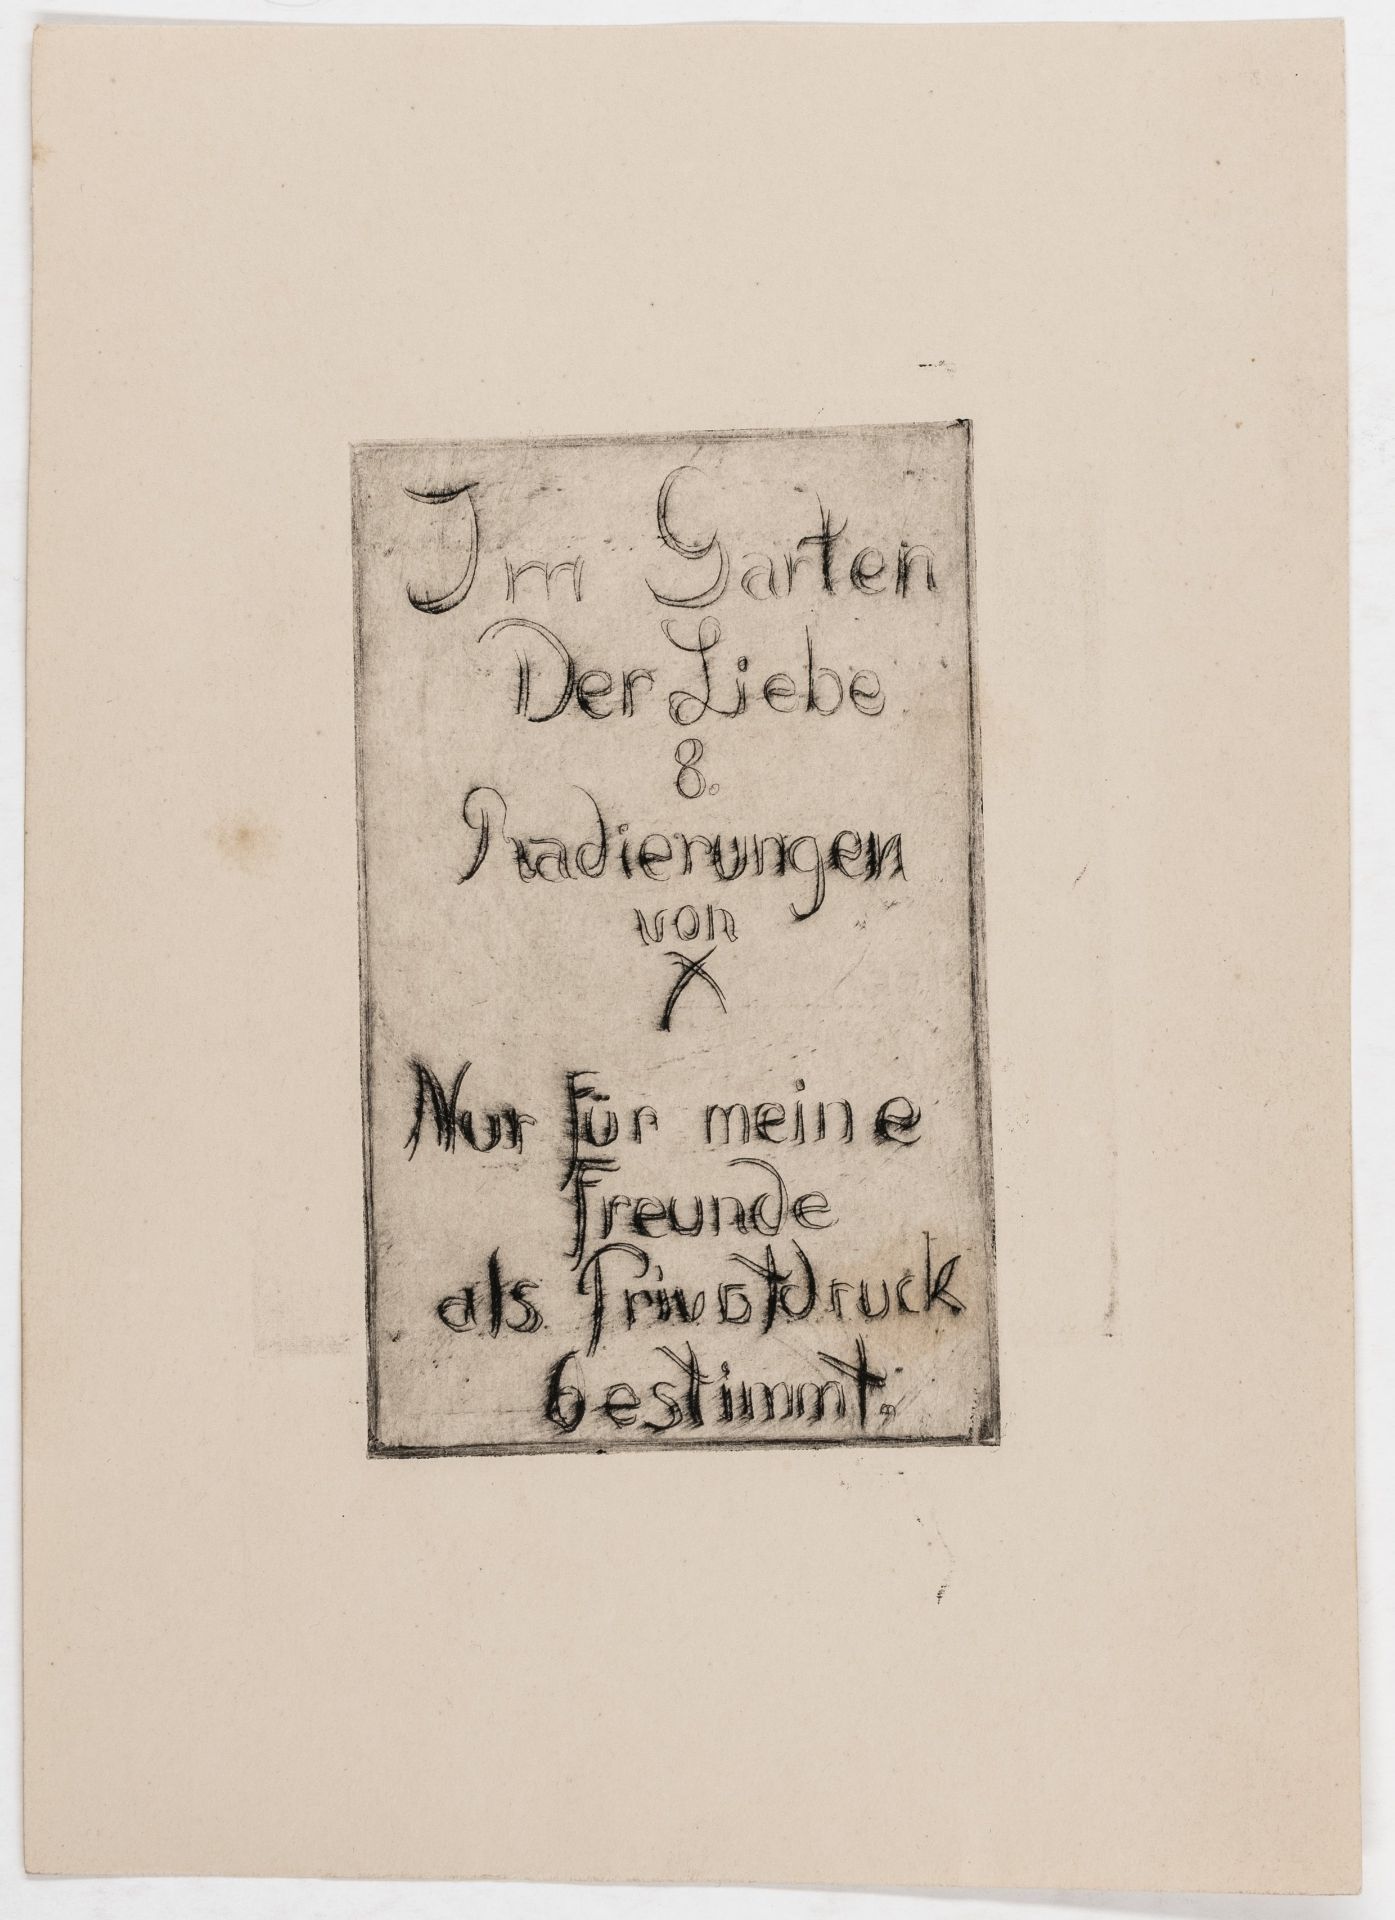 Im Garten
Der Liebe
8.
Radierungen
von
X
Nur für meine
Freunde
als Privatdruck
bestimmt.